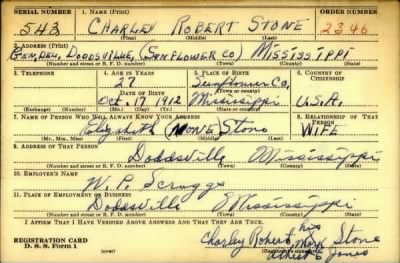 SERIAL NUMBER 1. NAME (Print) ORDER NUMBER
543 CHARLEY ROBERT STONE 2346
(First) (Middle) (Last)
2. ADDRESS (Print)
DODDSVILLE, (SUNFLOWER CO) MISSISSIPPI
(Number and street or R. F. D. number) (Town) (County) (State)
3. TELEPHONE 4. AGE IN YEARS 5. PLACE OF BIRTH 6. COUNTRY OF CITIZENSHIP
27 Sunflower Co,
DATE OF BIRTH (Town or county)
Oct. 17, 1912 Mississippi U.S.A.
(Exchange) (Number) (Mo.) (Day) (Yr.) (State or country)
7. NAME OF PERSON WHO WILL ALWAYS KNOW YOUR ADDRESS 8. RELATIONSHIP OF THAT PERSON
Elizabeth (NONE) Stone WIFE
(Mr., Mrs., Miss) (First) (Middle) (Last)
9. ADDRESS OF THAT PERSON
Doddsville Mississippi
(Number and street or R. F. D. number) (Town) (County) (State)
10. EMPLOYER'S NAME
W. P. Scruggs
11. PLACE OF EMPLOYMENT OR BUSINESS
Doddsville Mississippi
(Number and street or R. F. D. number) (Town) (County) (State)
I AFFIRM THAT I HAVE VERIFIED ABOVE ANSWERS AND THAT THEY ARE TRUE.
REGISTRATION CARD
D. S. S. Form 1 (over)
his
Charley Robert Mark Stone
Jones